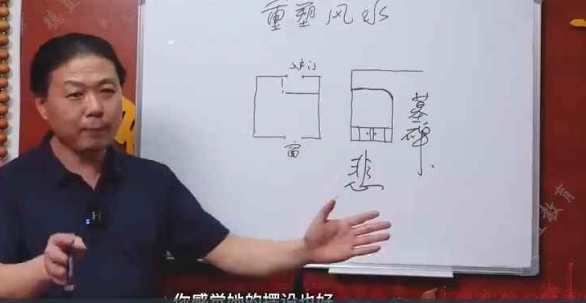 重塑风水
入户门
窗
墓碑
悲
你感觉她的摆设也好
教育